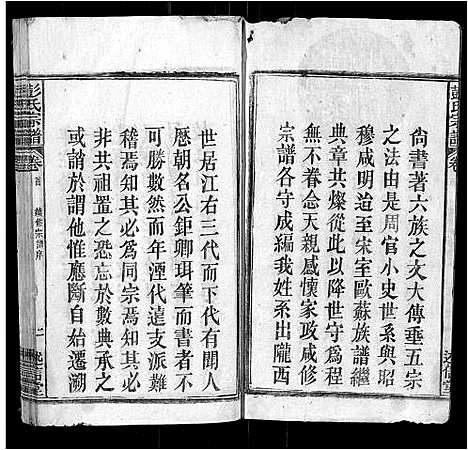 彭氏宗譜
卷
述信堂
尙書著六族之文大傳垂五宗
之法由是周官小史世系與昭
穆咸明迨至宋室歐蘇族譜繼
典章共燦從此以降世守爲程
無不眷念天親感懷家政咸修
宗譜各守成編我姓系出隴西
世居江右三代而下有聞人
歷朝名公鉅卿珥筆而書不
可勝數然而年湮代遠支派難
稽焉知其必爲同宗焉知其必
非共祖置之恐忘於數典承之
或誚於謂他惟應斷自始遷溯
彭氏宗譜
卷
首
續修宗譜序
一
述信堂